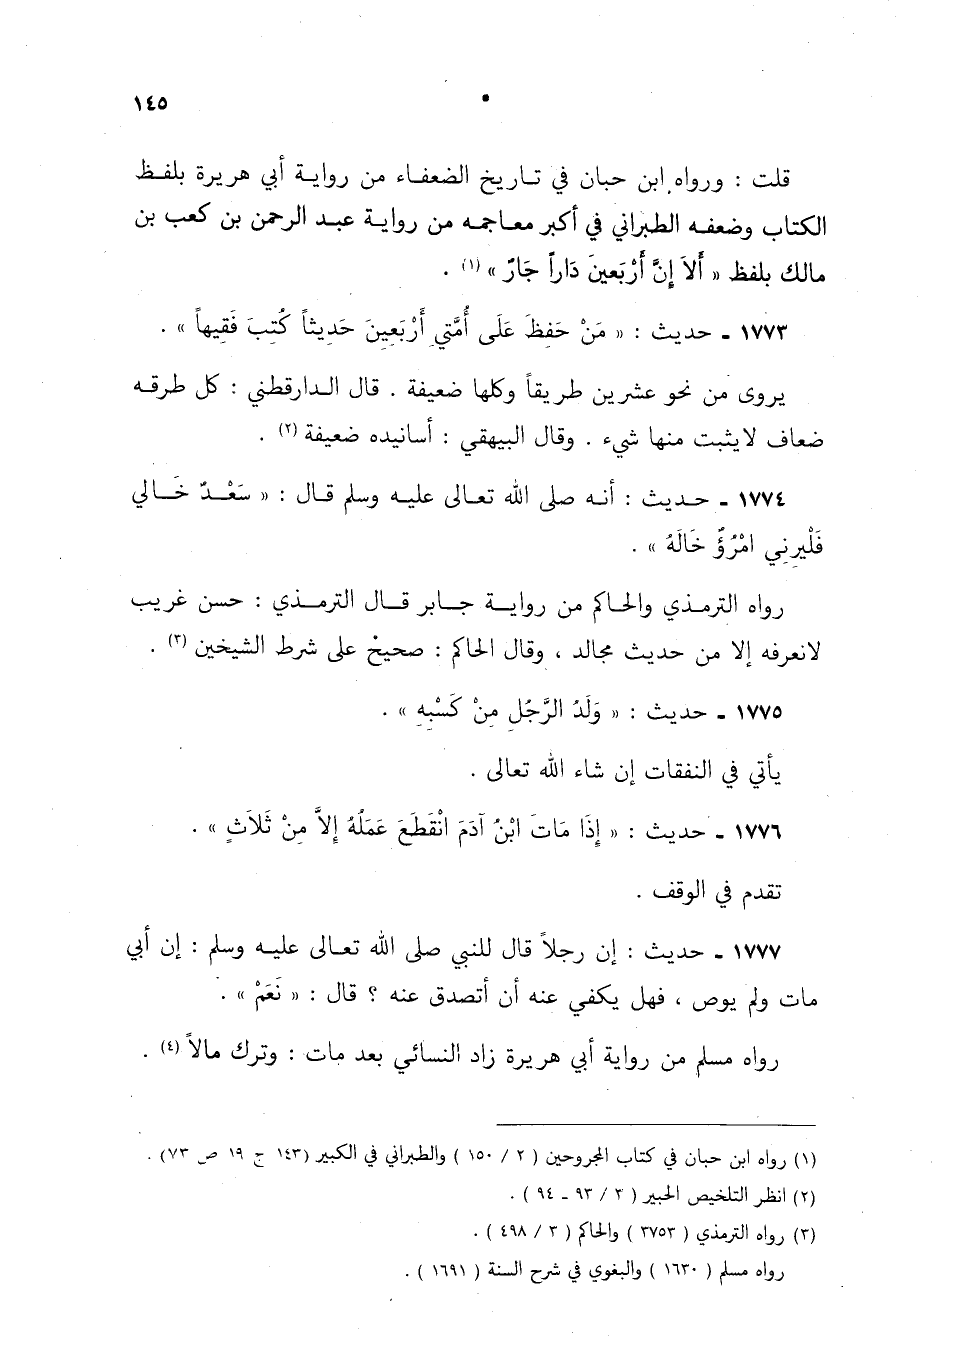 ١٤٥
قلت : ورواه ابن حبان في تاريخ الضعفاء من رواية أبي هريرة بلفظ
الكتاب وضعفه الطبراني في أكبر معاجمه من رواية عبد الرحمن بن كعب بن
مالك بلفظ « أَلاَ إِنَّ أَرْبَعينَ دَاراً جَارٌ » (١) .
١٧٧٣ ـ حديث : « مَنْ حَفِظَ عَلَى أُمَّتِي أَرْبَعِينَ حَدِيثاً كُتِبَ فَقِيهاً » .
يروى من نحو عشرين طريقاً وكلها ضعيفة . قال الدارقطني : كل طرقه
ضعاف لايثبت منها شيء . وقال البيهقي : أسانيده ضعيفة (٢) .
١٧٧٤ ـ حديث : أنه صلى الله تعالى عليه وسلم قال : « سَعْدٌ خَالي
فَلْيرِنِي امْرُؤٌ خَالَهُ » .
رواه الترمذي والحاكم من رواية جابر قال الترمذي : حسن غريب
لانعرفه إلا من حديث مجالد ، وقال الحاكم : صحيحٌ على شرط الشيخين (٣) .
١٧٧٥ ـ حديث : « وَلَدُ الرَّجُلِ مِنْ كَسْبِهِ » .
يأتي في النفقات إن شاء الله تعالى .
١٧٧٦ ـ حديث : « إِذَا مَاتَ ابْنُ آدَمَ انْقَطَعَ عَمَلُهُ إِلاَّ مِنْ ثَلاَثٍ » .
تقدم في الوقف .
١٧٧٧ ـ حديث : إن رجلاً قال للنبي صلى الله تعالى عليه وسلم : إن أبي
مات ولم يوص ، فهل يكفي عنه أن أتصدق عنه ؟ قال : « نَعَمْ » .
رواه مسلم من رواية أبي هريرة زاد النسائي بعد مات : وترك مالاً (٤) .
(١) رواه ابن حبان في كتاب المجروحين ( ٢ / ١٥٠ ) والطبراني في الكبير (١٤٣ ج ١٩ ص ٧٣) .
(٢) انظر التلخيص الحبير ( ٣ / ٩٣ ـ ٩٤ ) .
(٣) رواه الترمذي ( ٣٧٥٣ ) والحاكم ( ٣ / ٤٩٨ ) .
رواه مسلم ( ١٦٣٠ ) والبغوي في شرح السنة ( ١٦٩١ ) .